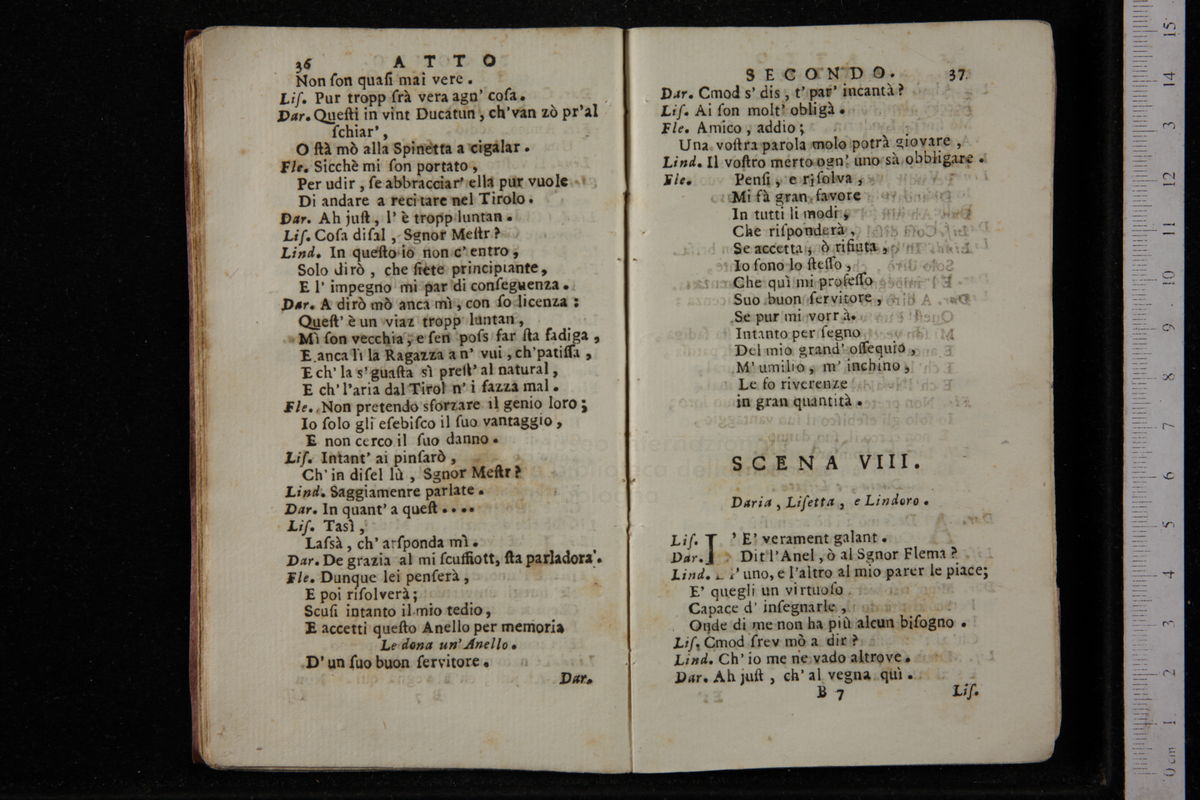 36 ATTO
Non ſon quaſi mai vere.
Liſ. Pur tropp ſrà vera agn' coſa.
Dar. Queſti in vint Ducatun, ch'van zò pr'al
ſchiar',
O ſtà mò alla Spinetta a cigalar.
Fle. Sicchè mi ſon portato,
Per udir, ſe abbracciar' ella pur vuole
Di andare a recitare nel Tirolo.
Dar. Ah juſt, l' è tropp luntan.
Liſ. Coſa diſal, Sgnor Meſtr?
Lind. In queſto io non c' entro,
Solo dirò, che ſiete principiante,
E l' impegno mi par di conſeguenza.
Dar. A dirò mò anca mì, con ſo licenza:
Queſt' è un viaz tropp luntan,
Mì ſon vecchia, e ſen poſs far ſta fadiga,
E anca lì la Ragazza a n' vui, ch'patiſſa,
E ch' la s'guaſta sì preſt' al natural,
E ch' l'aria dal Tirol n' i fazza mal.
Fle. Non pretendo sforzare il genio loro;
Io ſolo gli eſebiſco il ſuo vantaggio,
E non cerco il ſuo danno.
Liſ. Intant' ai pinſarò,
Ch' in diſel lù, Sgnor Meſtr?
Lind. Saggiamenre parlate.
Dar. In quant' a queſt....
Liſ. Tasì,
Laſsà, ch' arſponda mì.
Dar. De grazia al mi ſcuffiott, ſta parladora'.
Fle. Dunque lei penſerà,
E poi riſolverà;
Scuſi intanto il mio tedio,
E accetti queſto Anello per memoria
Le dona un' Anello.
D' un ſuo buon ſervitore.
Dar.
SECONDO. 37.
Dar. Cmod s' dis, t' par' incantà?
Liſ. Ai ſon molt' obligà.
Fle. Amico, addio;
Una voſtra parola molo potrà giovare,
Lind. Il voſtro merto ogn' uno sà obbligare.
Fle. Penſi, e riſolva,
Mi fà gran favore
In tutti li modi,
Che riſponderà,
Se accetta, ò rifiuta,
Io ſono lo ſteſſo,
Che quì mi profeſſo
Suo buon ſervitore,
Se pur mi vorrà.
Intanto per ſegno
Del mio grand' oſſequio,
M' umilio, m' inchino,
Le fo riverenze
in gran quantità.
SCENA VIII.
Daria, Liſetta, e Lindoro.
Liſ. I' E' verament galant.
Dar. Dit l'Anel, ò al Sgnor Flema?
Lind. L' uno, e l'altro al mio parer le piace;
E' quegli un virtuoſo
Capace d' inſegnarle,
Onde di me non ha più alcun biſogno.
Liſ. Cmod frev mò a dir?
Lind. Ch' io me ne vado altrove.
Dar. Ah juſt, ch' al vegna quì.
B 7 Liſ.